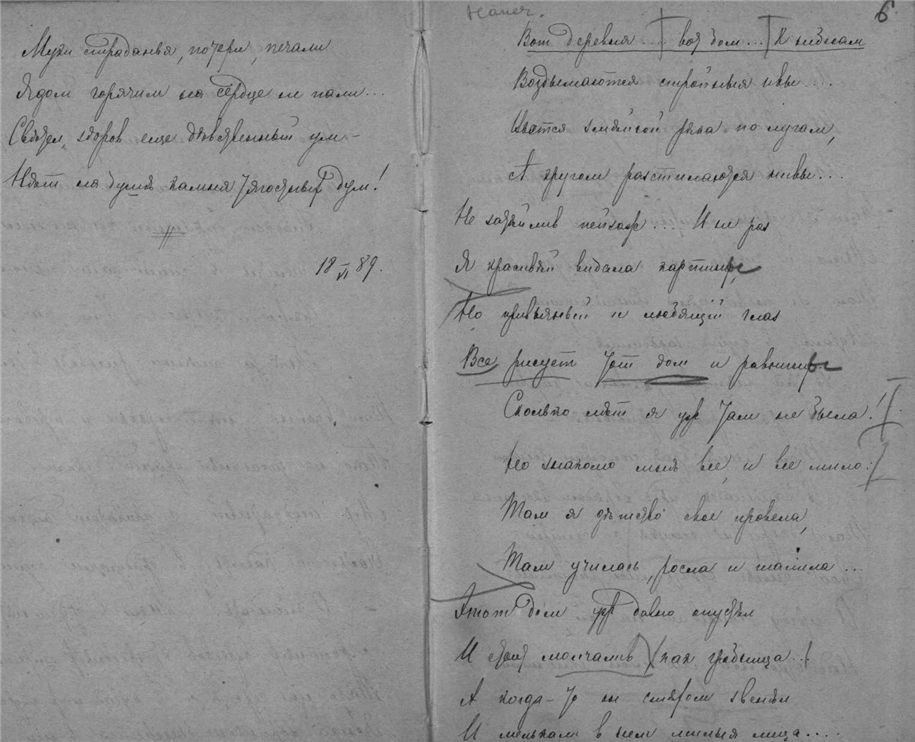 Муки страданья, потери, печали
Ядом горячим на сердце не пали...
Светел, здоров еще девственный ум –
Нет на душе камня тягостных дум!
18 VI 89.
6
Вот деревня... вот дом... К небесам
Воздымаются стройныя ивы...
Вьется змейкой река по лугам,
А кругом расстилаются нивы...
Не затейлив пейзаж... И не раз
Я красивей видала картины
Но привычный и любящий глаз
Все рисует тот дом и равнины
Сколько лет я уж там не была!
Но знакомо мне все, и все мило:
Там я детство свое провела,
Там училась, росла и шалила...
Этот дом уж давно опустел
И стоит молчалив, как гробница...
А когда-то он смехом звенел
И мелькали в нем милыя лица....